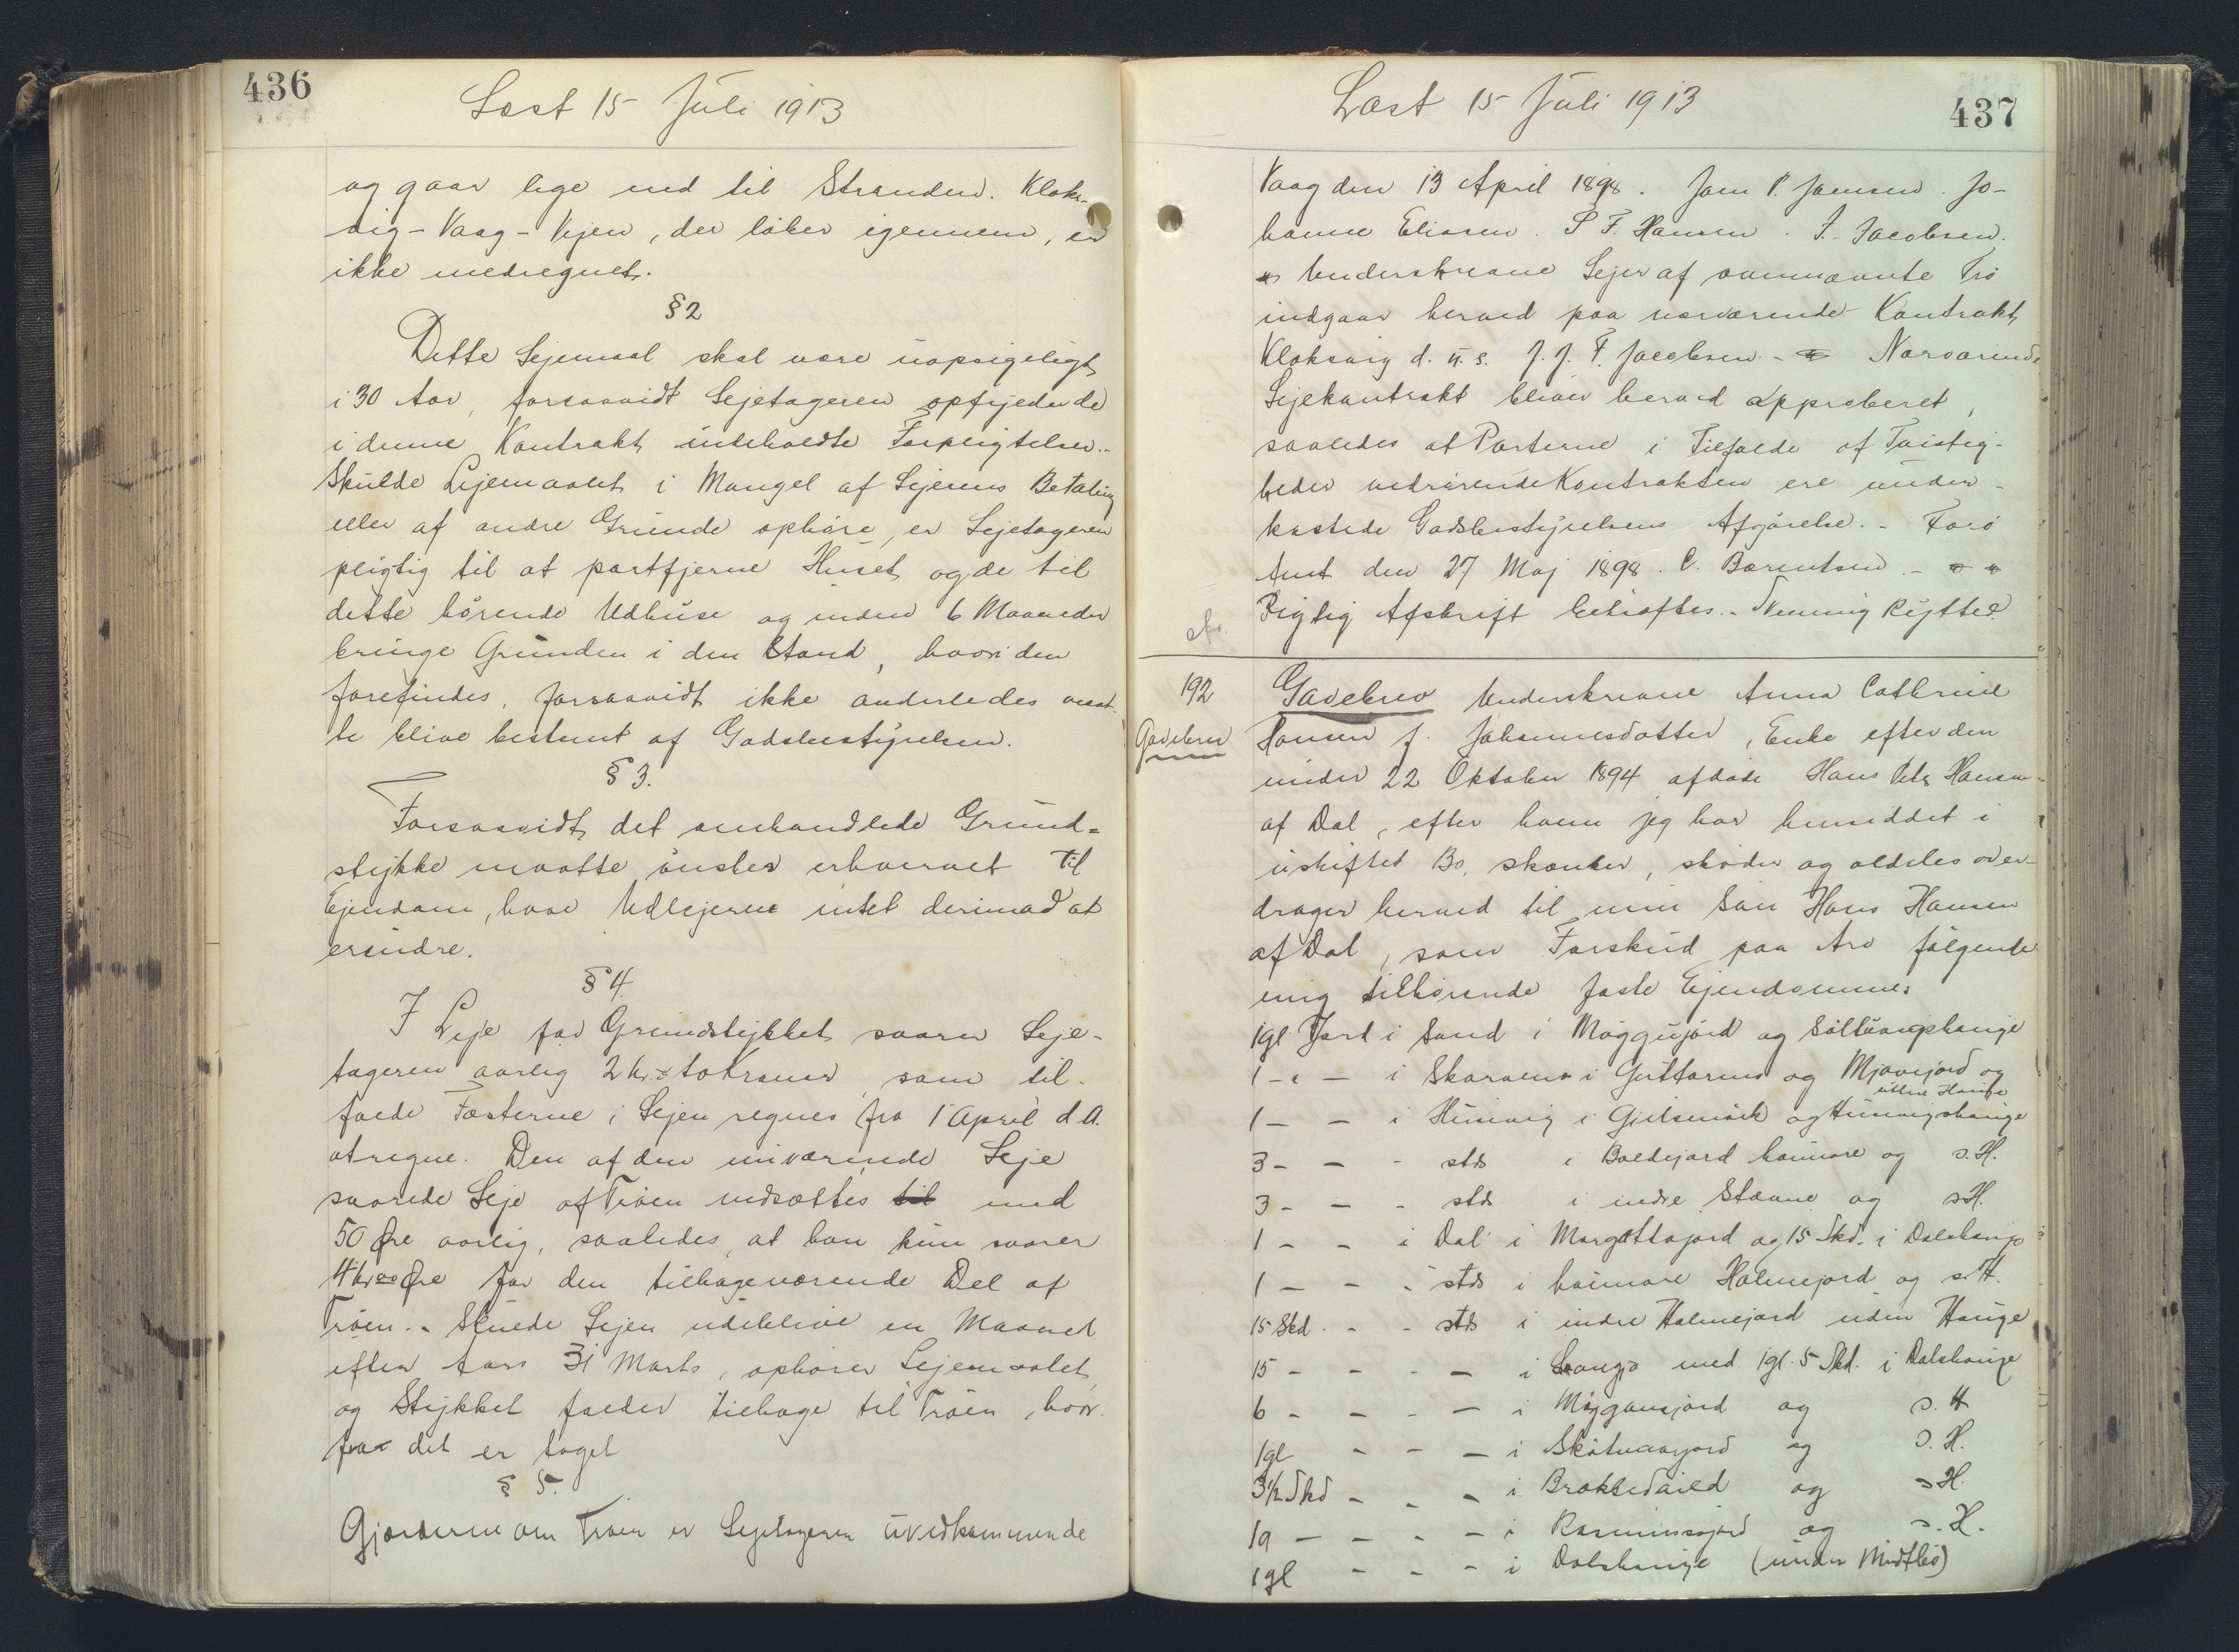 436
Læst 15 Juli 1913
og gaar lige ned til Stranden. Klaks-
vig-Vaag-Vejen, der løber igennem, er
ikke medregnet.
§2
Dette Lejemaal skal være uopsigeligt
i 30 Aar, forsaavidt Lejetageren opfylder de
i denne Kontrakt indeholdte Forpligtelser.-
Skulde Lejemaalet i Mangel af Lejerens Betaling
eller af andre Grunde ophøre, er Lejetageren
pligtig til at bortfjerne Huset og de til
dette hørende Udhuse og inden 6 Maaneder
bringe Grunden i den Stand, hvori den
forefindes, forsaavidt ikke anderledes maat-
te blive bestemt af Godsbestyrelsen.
§ 3.
Forsaavidt det omhandlede Grund-
stykke maatte ønskes erhvervet til
Ejendom, have Udlejerne intet derimod at
erindre.
§ 4.
I Leje for Grundstykket svarer Leje-
tageren aarlig 2 Kr. to Kroner, som til-
falde Fæsterne i Lejen regnes fra 1 April d.A.
at regne. Den af den nuværende Leje
svarede Leje af Trøen nedsættes til med
50 Øre aarlig, saaledes, at han kun svarer
4 kr 00 Øre for den tilbageværende Del af
Trøen.- Skulde Lejen udeblive en Maaned
efter hvers 31 Marts, ophører Lejemaalet,
og Stykket falder tilbage til Trøen, hvor-
fra det er taget
§ 5.
Gjærderne om Trøen er Lejetageren uvedkommende
Læst 15 Juli 1913
437
Vaag den 13 April 1898. Joen P. Joensen. Jo-
hanne Eliasen. P F. Hansen. J. Jacobsen.
Underskrevne Lejer af ovennævnte Trø
indgaar herved paa nærværende Kontrakt,
Klaksvig d. u. s. J. J. F. Jacobsen. - Nærværende
Lejekontrakt bliver herved approberet,
saaledes at Parterne i Tilfælde af Tvistig-
heder vedrørende Kontrakten ere under-
kastede Godsbestyrelsens Afgørelse. - Færø
Amt den 27 Maj 1898. C. Bærentsen. -
Rigtig Afskrift bekræftes.- Flemming Rytter
192
Gavebrev
Gavebrev Underskrevne Anna Cathrine
Hansen f. Johannesdatter, Enke efter den
under 22 Oktober 1894 afdøde Hans Peter Hansen
af Dal, efter hvem jeg har hensiddet i
uskiftet Bo, skænker, skøder og aldeles over-
drager herved til min Søn Hans Hansen
af Dal, som Forskud paa Arv følgende
mig tilhørende faste Ejendomme:
1 gl. Jord i Sand i Møggujørd og Søltuvogshauge
1 - - i Skarvenes i Guttarunes og Mjovejørd og
uttre Hauge
1 - - i Husevig i Gjilsmørk og Husevigshauge
3 - - - stds i Boldejord haimare og s.H.
3 - - - stds i indre Stævne og s.H.
1 - - i Dal i Margottajord og 15 Skd. i Dalshauge
1 - - - stds i haimare Halmejord og s.H.
15 Skd. - - stds i indre Halmejord uden Hauge
15 - - - - i Langjø med 1 gl. 5 Skd. i Dalshauge
6 - - - - i Møggansjord og s. H
1 gl - - - i Skøtumarjord og s. H.
3 1/2 Skd - - - i Brokkedaild og s H.
19 - - - - i Rasmussajord og s. H.
1 gl - - - i Dalshauge (under Midtbø)